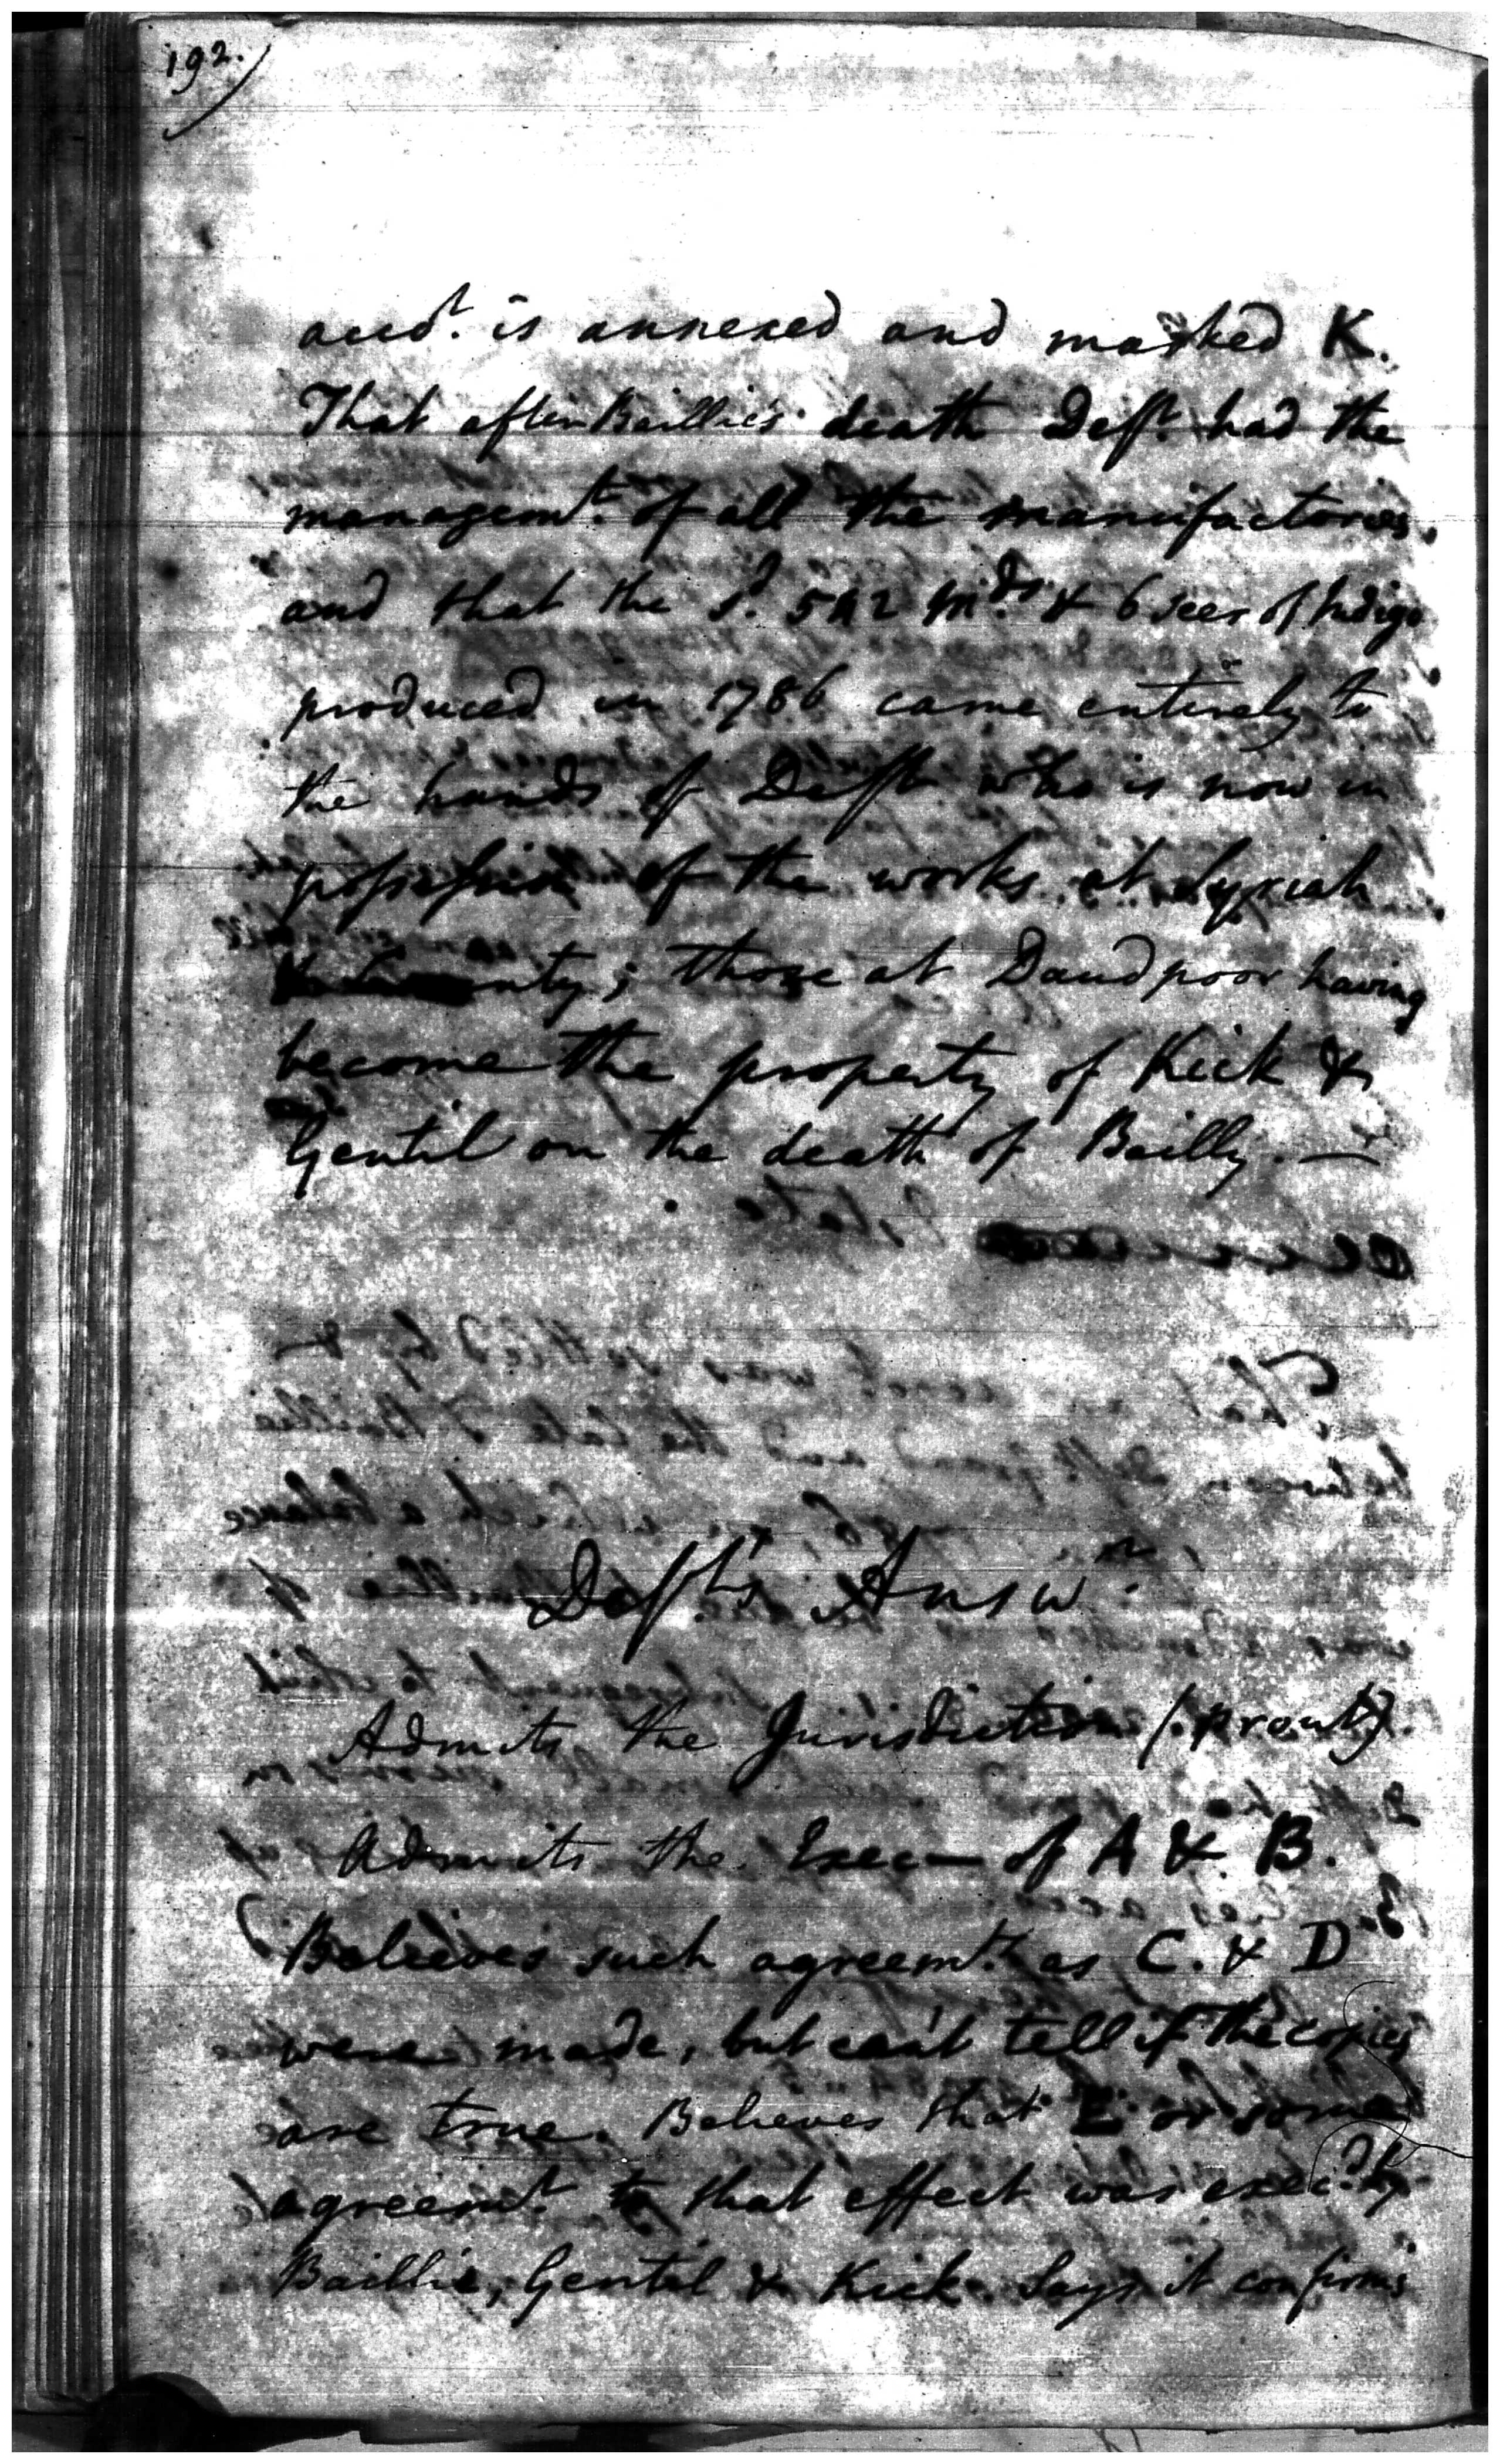 192.
accot. is annexed and marked K.
That after Baillie's death Deft. had the
managemt. of all the manufactories,
and that the sd. 542 mds. & 6 seer of Indigo
produced in 1786 came entirely to
the hands of Deft. who is now in
possession of the works at Syriah
; those at Daudpoor having
become the property of Kick &
Gentil on the death of Bailly. —
Deft's Answr.
Admits the Jurisdiction (prout).
Admits the Exec— of A & B.
Believes such agreemt. as C. & D
were made, but can't tell if the copies
are true. Believes that E or some
agreemt. to that effect was execd. by
Baillie, Gentil & Kick. Says it confirms